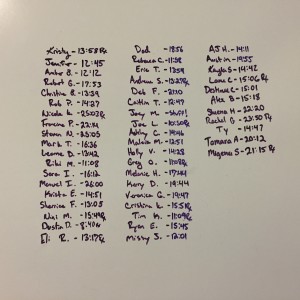 Kristy - 13:58 Rx
Jennifer - 12:45
Amber B - 12:12
Robert G. - 17:53
Christine B - 13:59
Rob P. - 14:27
Nicole L - 25:02 Rx
Francine P - 22:14
Steven N. - 23:05
Mark T. - 16:36
Leanne D. - 13:42
Ribi M. - 11:08
Sara I. - 16:12
Manuel I. - 26:00
Krista E. - 14:51
Sherrice F. - 13:05
Niki M. - 15:49 Rx
Dustin D. - 8:40 Rx
Eli R. - 13:17 Rx
Dad - 18:56
Rebecca C - 11:58
Eric T. - 13:59
Andrew S. - 13:27 Rx
Deb F. - 21:10
Caitlin T. - 12:47
Joey M.
Joe C. - 10:50 Rx
Ashley C. - 14:46
Melanie M. - 12:51
Holly V. - 14:28
Greg O. - 11:08 Rx
Melanie H. - 17:41
Harry D. - 19:44
Veronica G. - 19:47
Cristina L. - 15:51 Rx
Tim K. - 11:09 Rx
Ryan E. - 15:45
Missy S. - 12:01
AJ H. - 14:11
Austin - 19:55
Kayla S - 14:42
Lane C - 15:06 Rx
Destinee C - 15:01
Alex B - 15:18
Shawna H - 22:20
Rachel G - 23:50 Rx
Ty - 14:47
Tamara A - 20:12
Megann S - 21:15 Rx